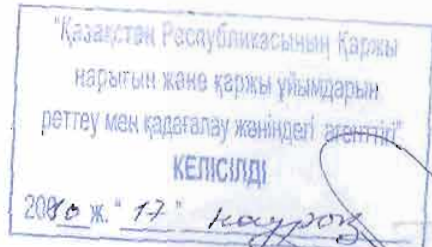 "Қазақстан Республикасының Қаржы
нарығын және қаржы ұйымдарын
реттеу мен қадағалау жөніндегі агенттігі"
КЕЛІСІЛДІ
2010 ж. "17" наурыз